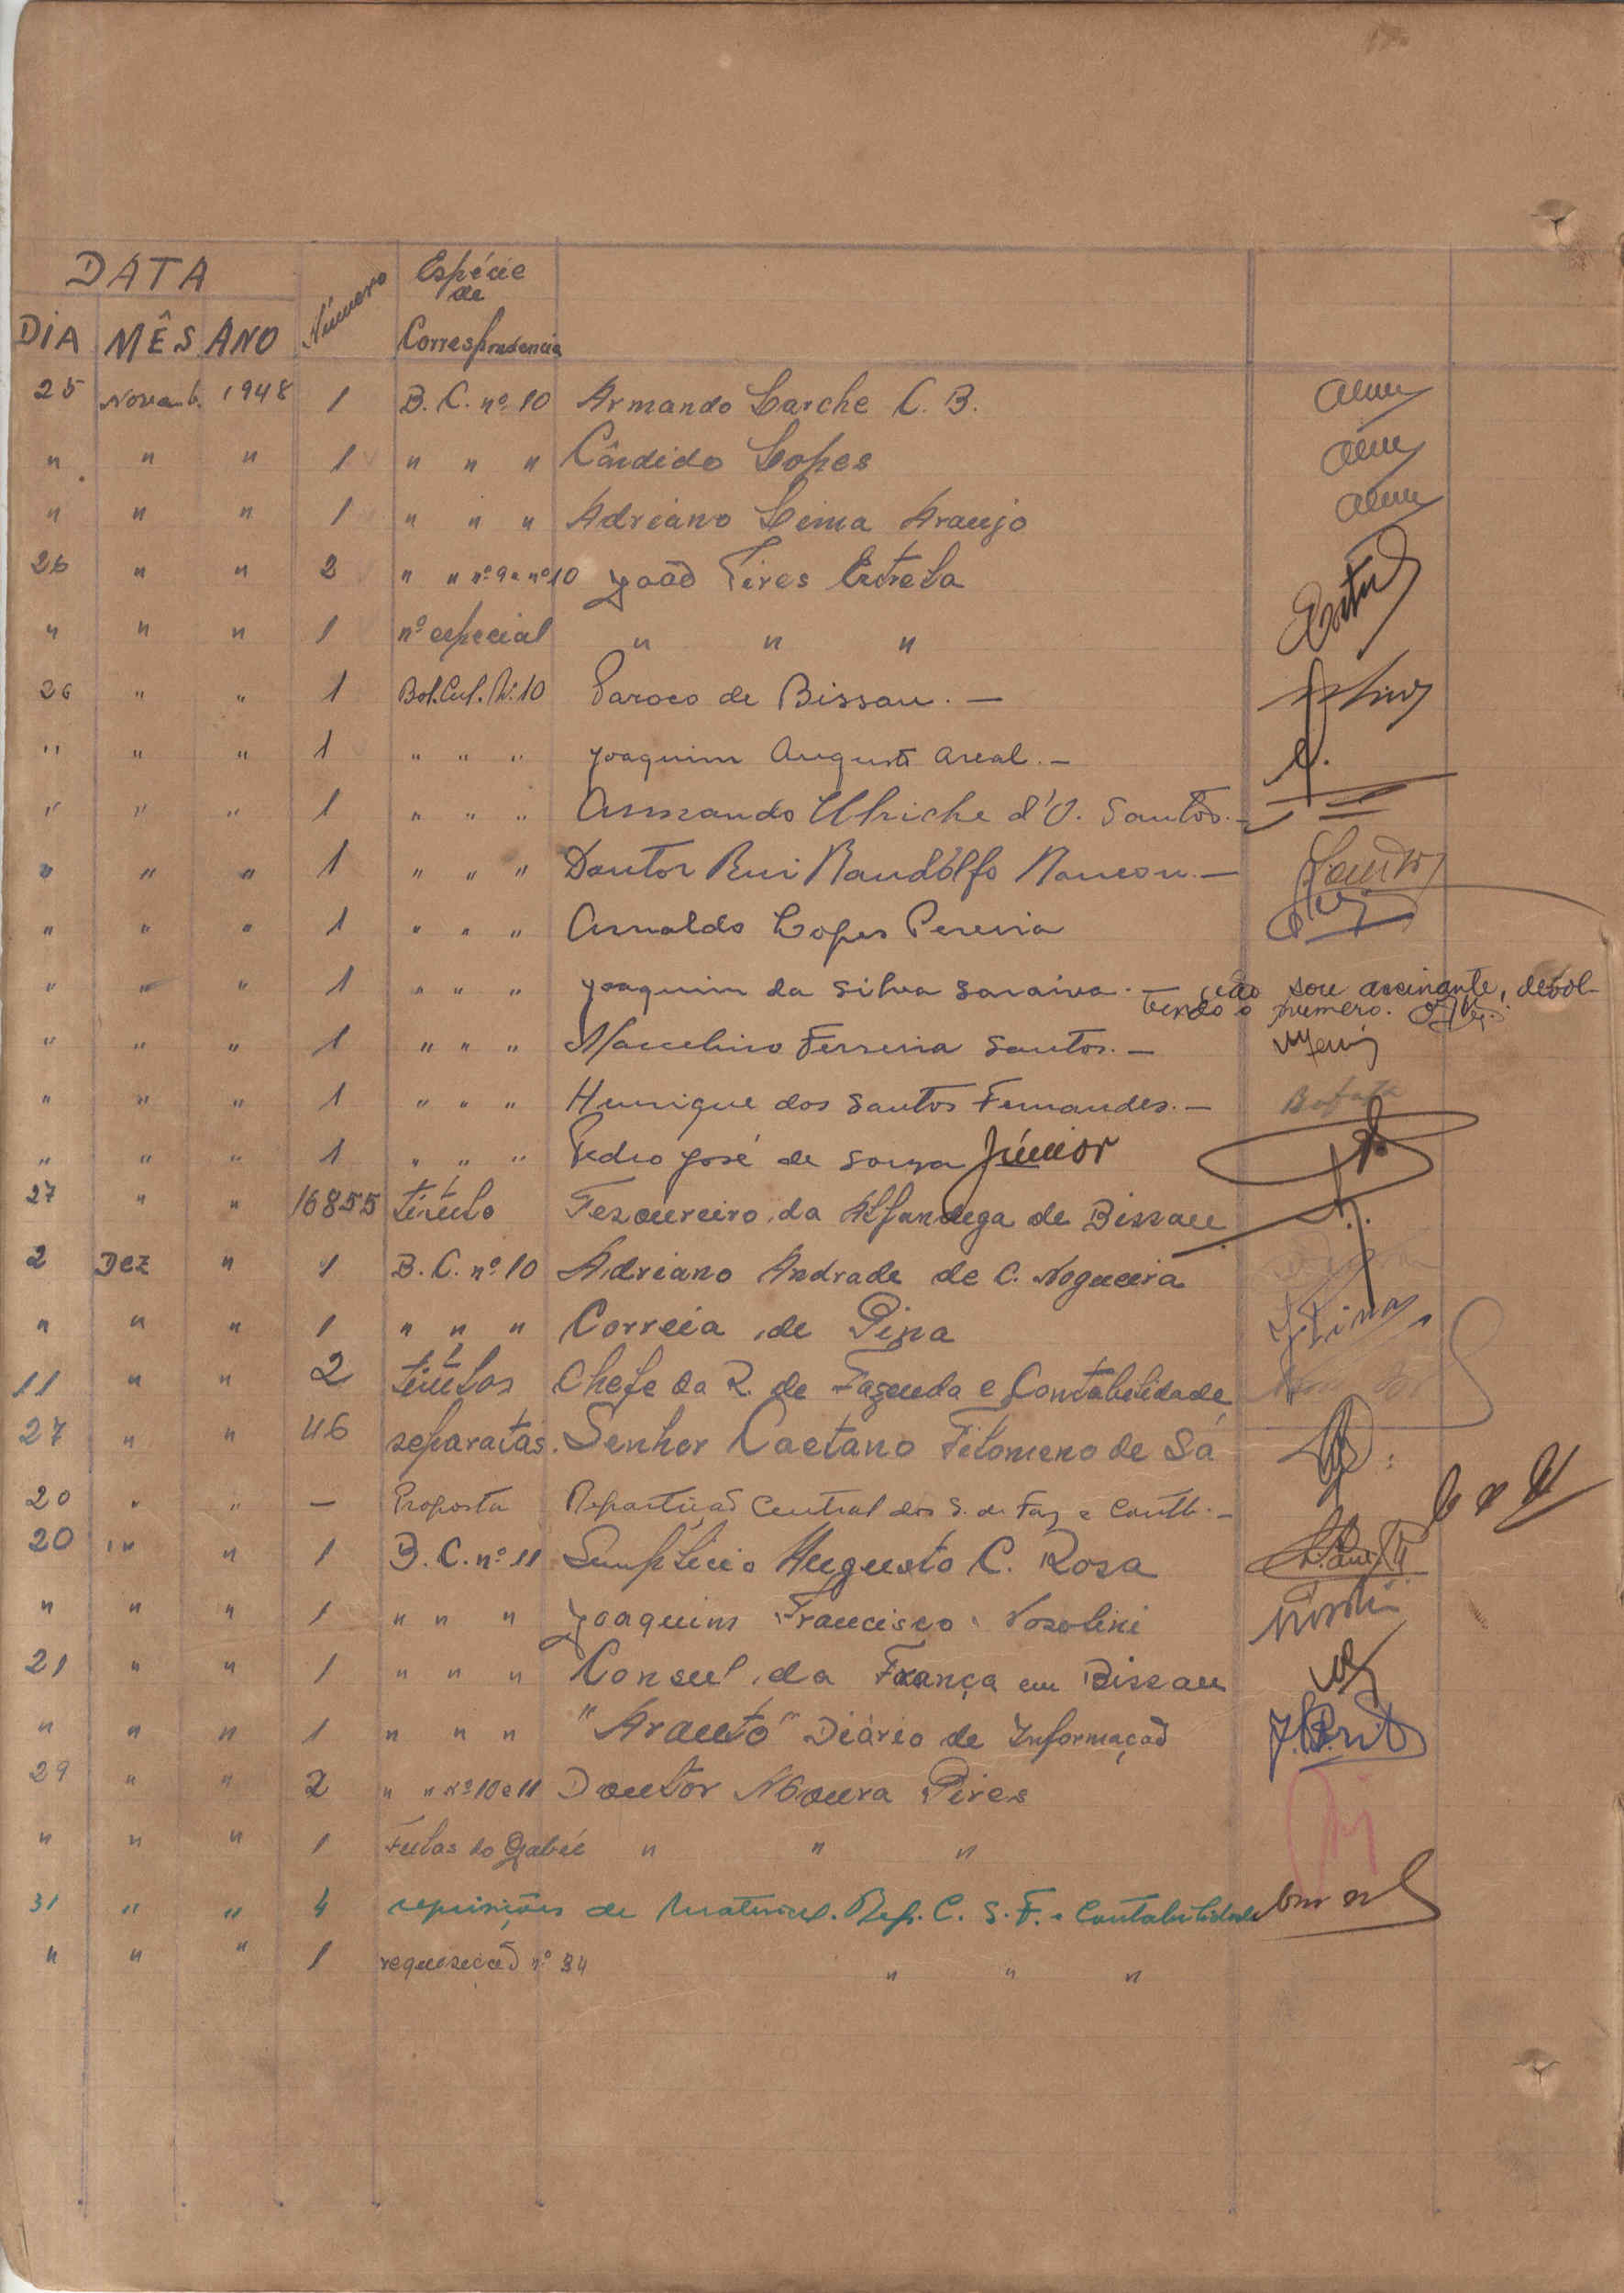 DATA
Número
Espécie
de
DIA MÊS ANO
Correspondencia
25 Novemb. 1948 1 B. C. nº 10 Armando Larche C. B.
" " " 1 " " " Cândido Lopes
" " " 1 " " " Adriano Lima Araujo
26 " " 2 " " nº 9 e nº 10 João Pires Estrela
" " " 1 nº especial " " "
26 " " 1 Bol. Cul. Nº 10 Paroco de Bissau. —
" " " 1 " " " Joaquim Augusto Areal. —
" " " 1 " " " Armando Ulriche d'O. Santos. —
" " " 1 " " " Doutor Rui —
" " " 1 " " " Arnaldo Lopes Pereira
" " " 1 " " " Joaquim da Silva Saraiva. — não sou assinante, devol-
vendo o numero.
" " " 1 " " " Marcelino Ferreira Santos. —
" " " 1 " " " Henrique dos Santos Fernandes. — Bafata
" " " 1 " " " Pedro José de Souza Júnior
27 " " 16855 título Tesoureiro da Alfandega de Bissau
2 Dez " 1 B. C. nº 10 Adriano Andrade de C. Nogueira
" " " 1 " " " Correia de Pina
11 " " 2 títulos Chefe da R. de Fazenda e Contabilidade
27 " " 46 separatas. Senhor Caetano Filomeno de Sá
20 " " — Proposta Repartição Central dos S. de Faz e Contb. —
20 " " 1 B. C. nº 11 Simplicio Augusto C. Rosa
" " " 1 " " " Joaquim Francisco Nosolini
21 " " 1 " " " Consul da França em Bissau
" " " 1 " " " "Arauto" Diário de Informação
29 " " 2 " " nº 10 e 11 Doutor Moura Pires
" " " 1 Fulas do Gabú " " "
31 " " 4 requisições de Material. Rep. C. S. F. e Contabilidade
" " " 1 requisição nº 34 " " "